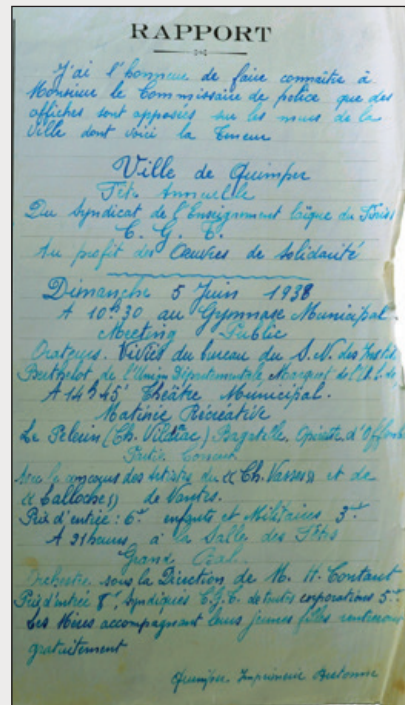 RAPPORT
J'ai l'honneur de faire connaître à
Monsieur le Commissaire de police que des
affiches sont apposées sur les murs de la
Ville dont voici la teneur
Ville de Quimper
Fête Annuelle
Du Syndicat de l'Enseignement laïque du Finis
C. G. T.
Au profit des Oeuvres de solidarité
Dimanche 5 Juin 1938
A 10h30 au Gymnase Municipal.
Meeting Public
Orateurs. Vivès du bureau du S. N. des Instit.
Berthelot, de l'Union Départementale Marquet de l'U. L. de
A 14h45 Théâtre Municipal.
Matinée Récréative
Le Pelerin (Ch. Vildrac) Bagatelle, Opérette d'Offenb
Partie Concert
avec le concours des artistes du "Ch. Vasseur" et de
de Nantes.
Prix d'entrée: 6 F enfants et Militaires 3 F
A 21 heures à la Salle des Fêtes
Grand Bal
Orchestre sous la Direction de M. H. Contant
Prix d'entrée 8 F, syndiqués C.G.T. de toutes corporations 5 F
Les Mères accompagnant leurs jeunes filles rentreront
gratuitement
Quimper Imprimerie Bretonne